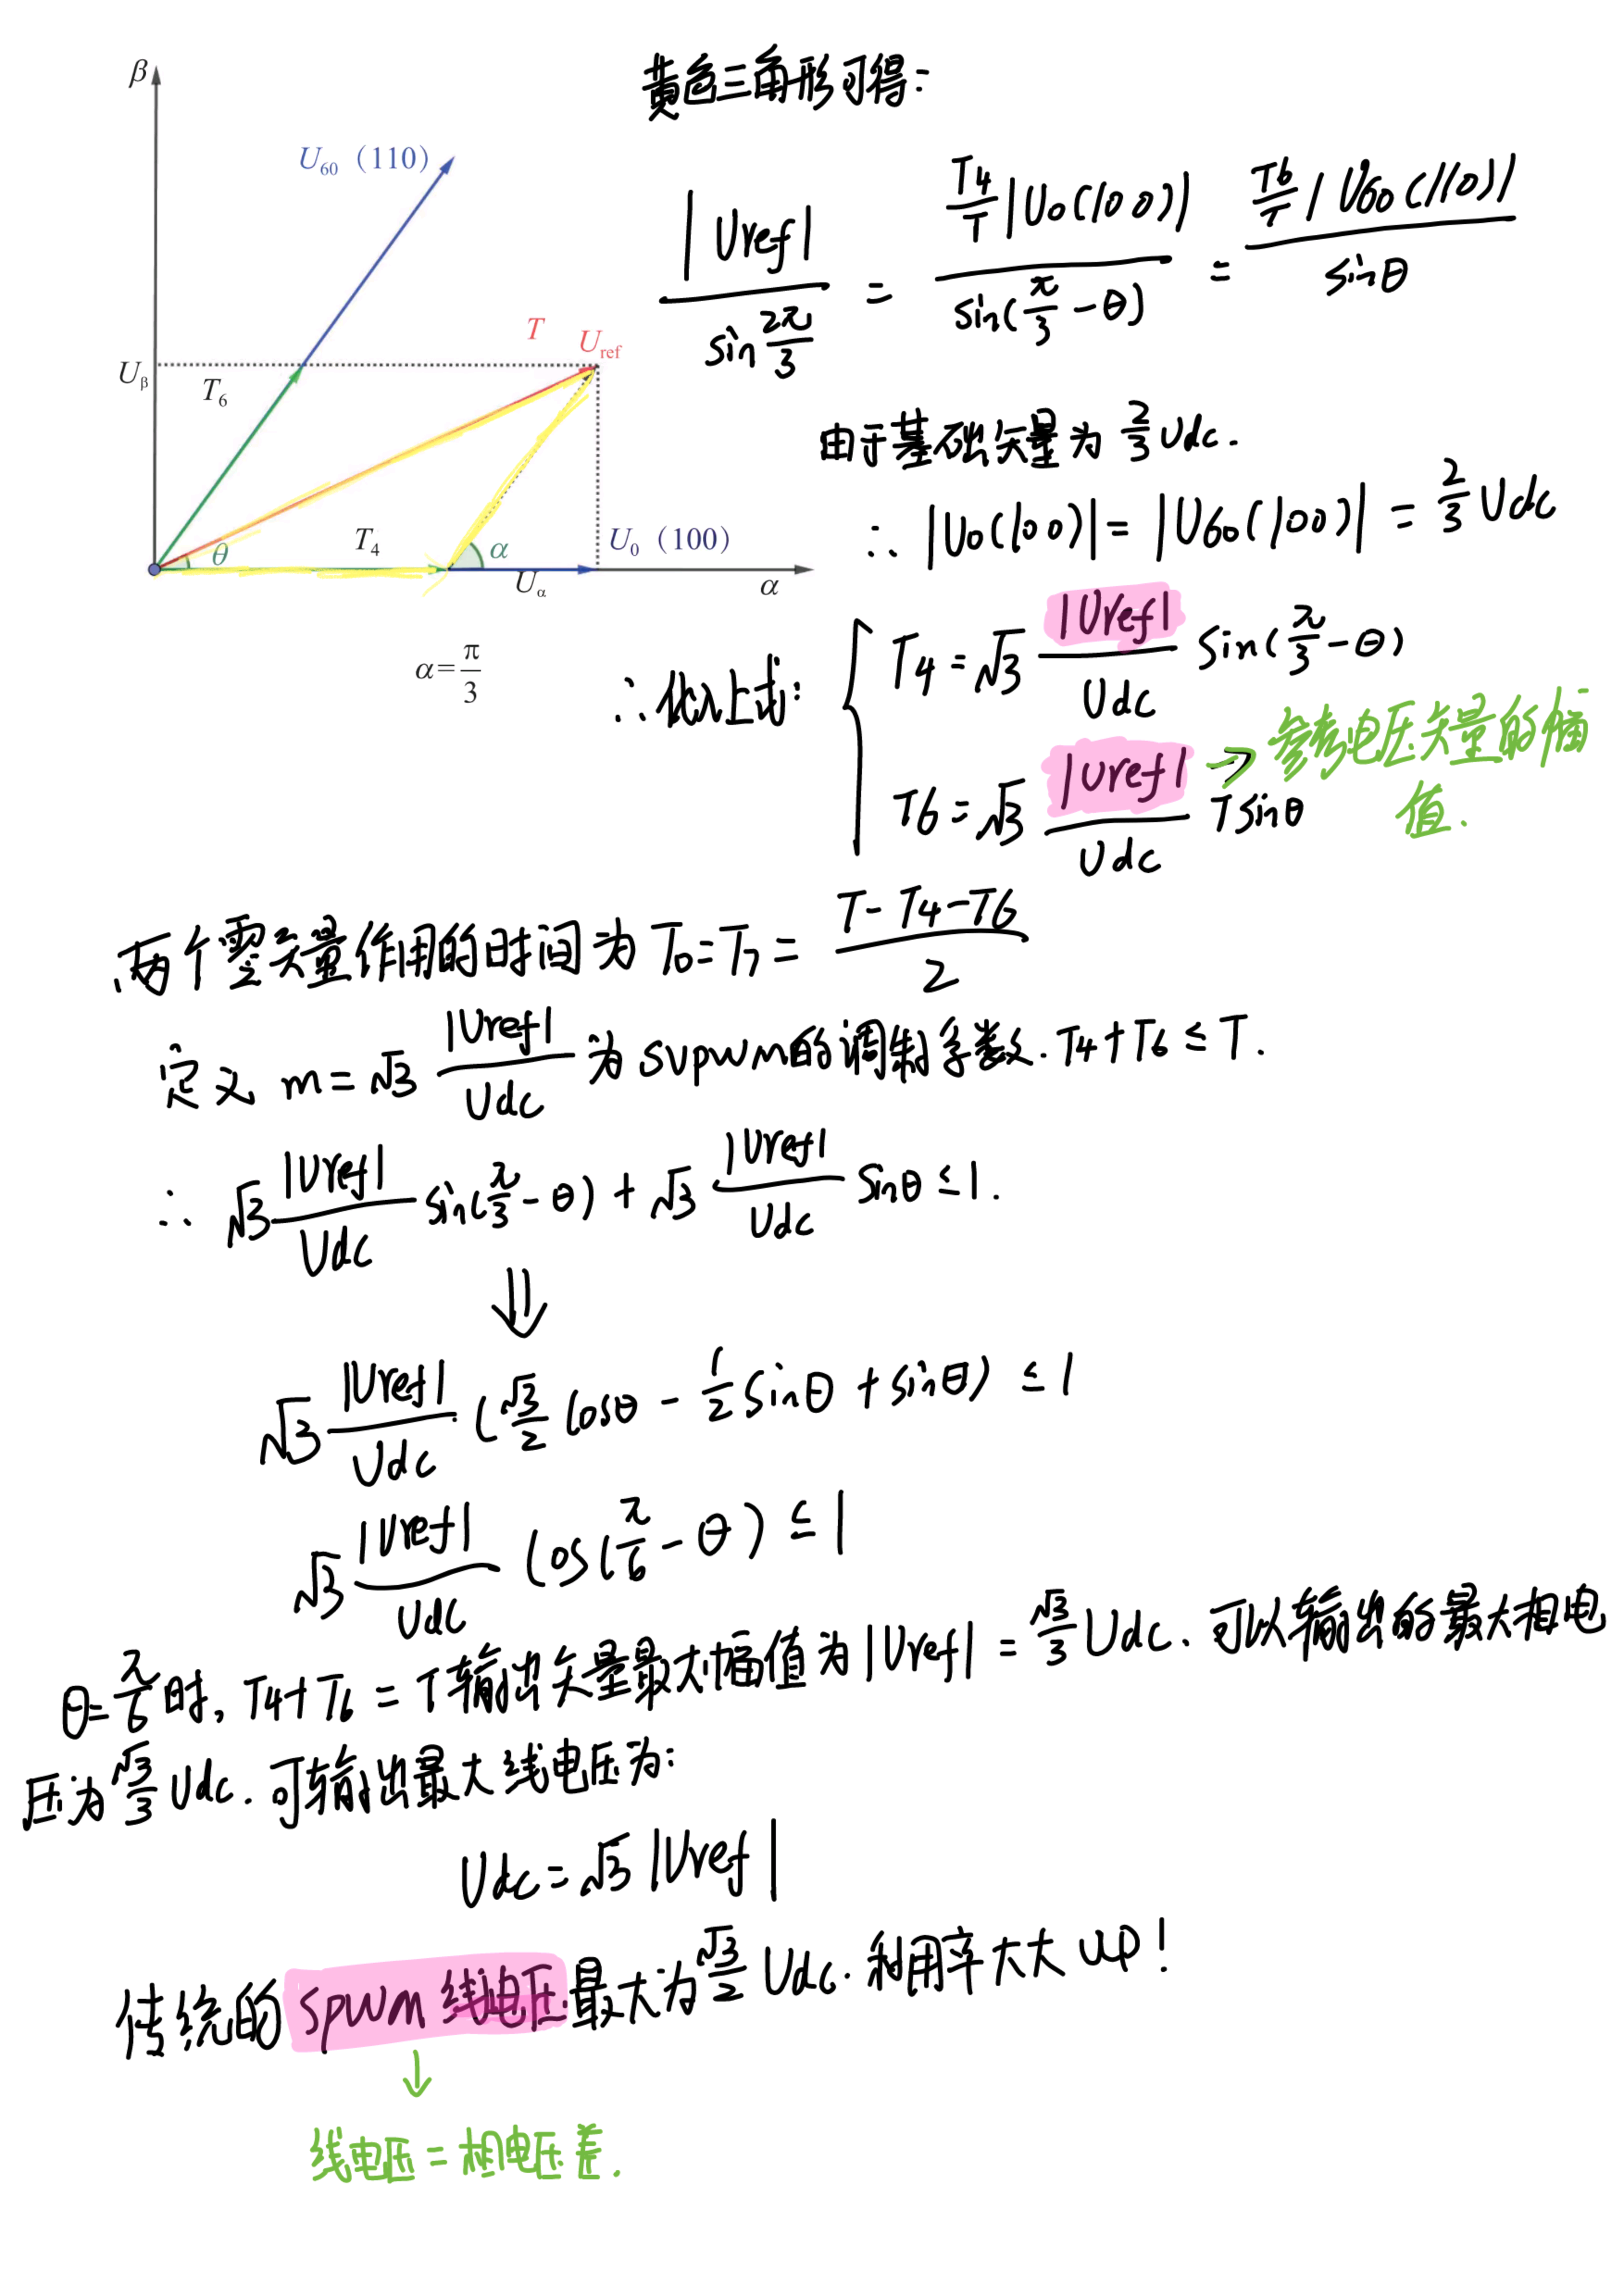 β
U₆₀ (110)
T
U_ref
U_β
T₆
θ
T₄
α
U₀ (100)
U_α
α
α = π/3
黄色三角形可得:
|Uref| / sin(2π/3) = (T4/T)|U0(100)| / sin(π/3 - θ) = (T6/T)|U60(110)| / sinθ
由于基础矢量为 2/3 Udc.
∴ |U0(100)| = |U60(100)| = 2/3 Udc
∴代入上式:
T4 = √3 |Uref|/Udc sin(π/3 - θ)
T6 = √3 |Uref|/Udc T sinθ
→ 参考电压矢量的幅
值.
两个零矢量作用的时间为 T0 = T7 = (T - T4 - T6)/2
定义 m = √3 |Uref|/Udc 为 SVPWM的调制系数. T4 + T6 ≤ T.
∴ √3 |Uref|/Udc sin(π/3 - θ) + √3 |Uref|/Udc sinθ ≤ 1.
⇓
√3 |Uref|/Udc (√3/2 cosθ - 1/2 sinθ + sinθ) ≤ 1
√3 |Uref|/Udc cos(π/6 - θ) ≤ 1
θ = π/6 时, T4 + T6 = T 输出矢量最大幅值为 |Uref| = √3/3 Udc. 可以输出的最大相电
压为 √3/3 Udc. 可输出最大线电压为:
Udc = √3 |Uref|
传统的 SPWM 线电压最大为 √3/2 Udc. 利用率大大 UP!
↓
线电压 = 相电压差.